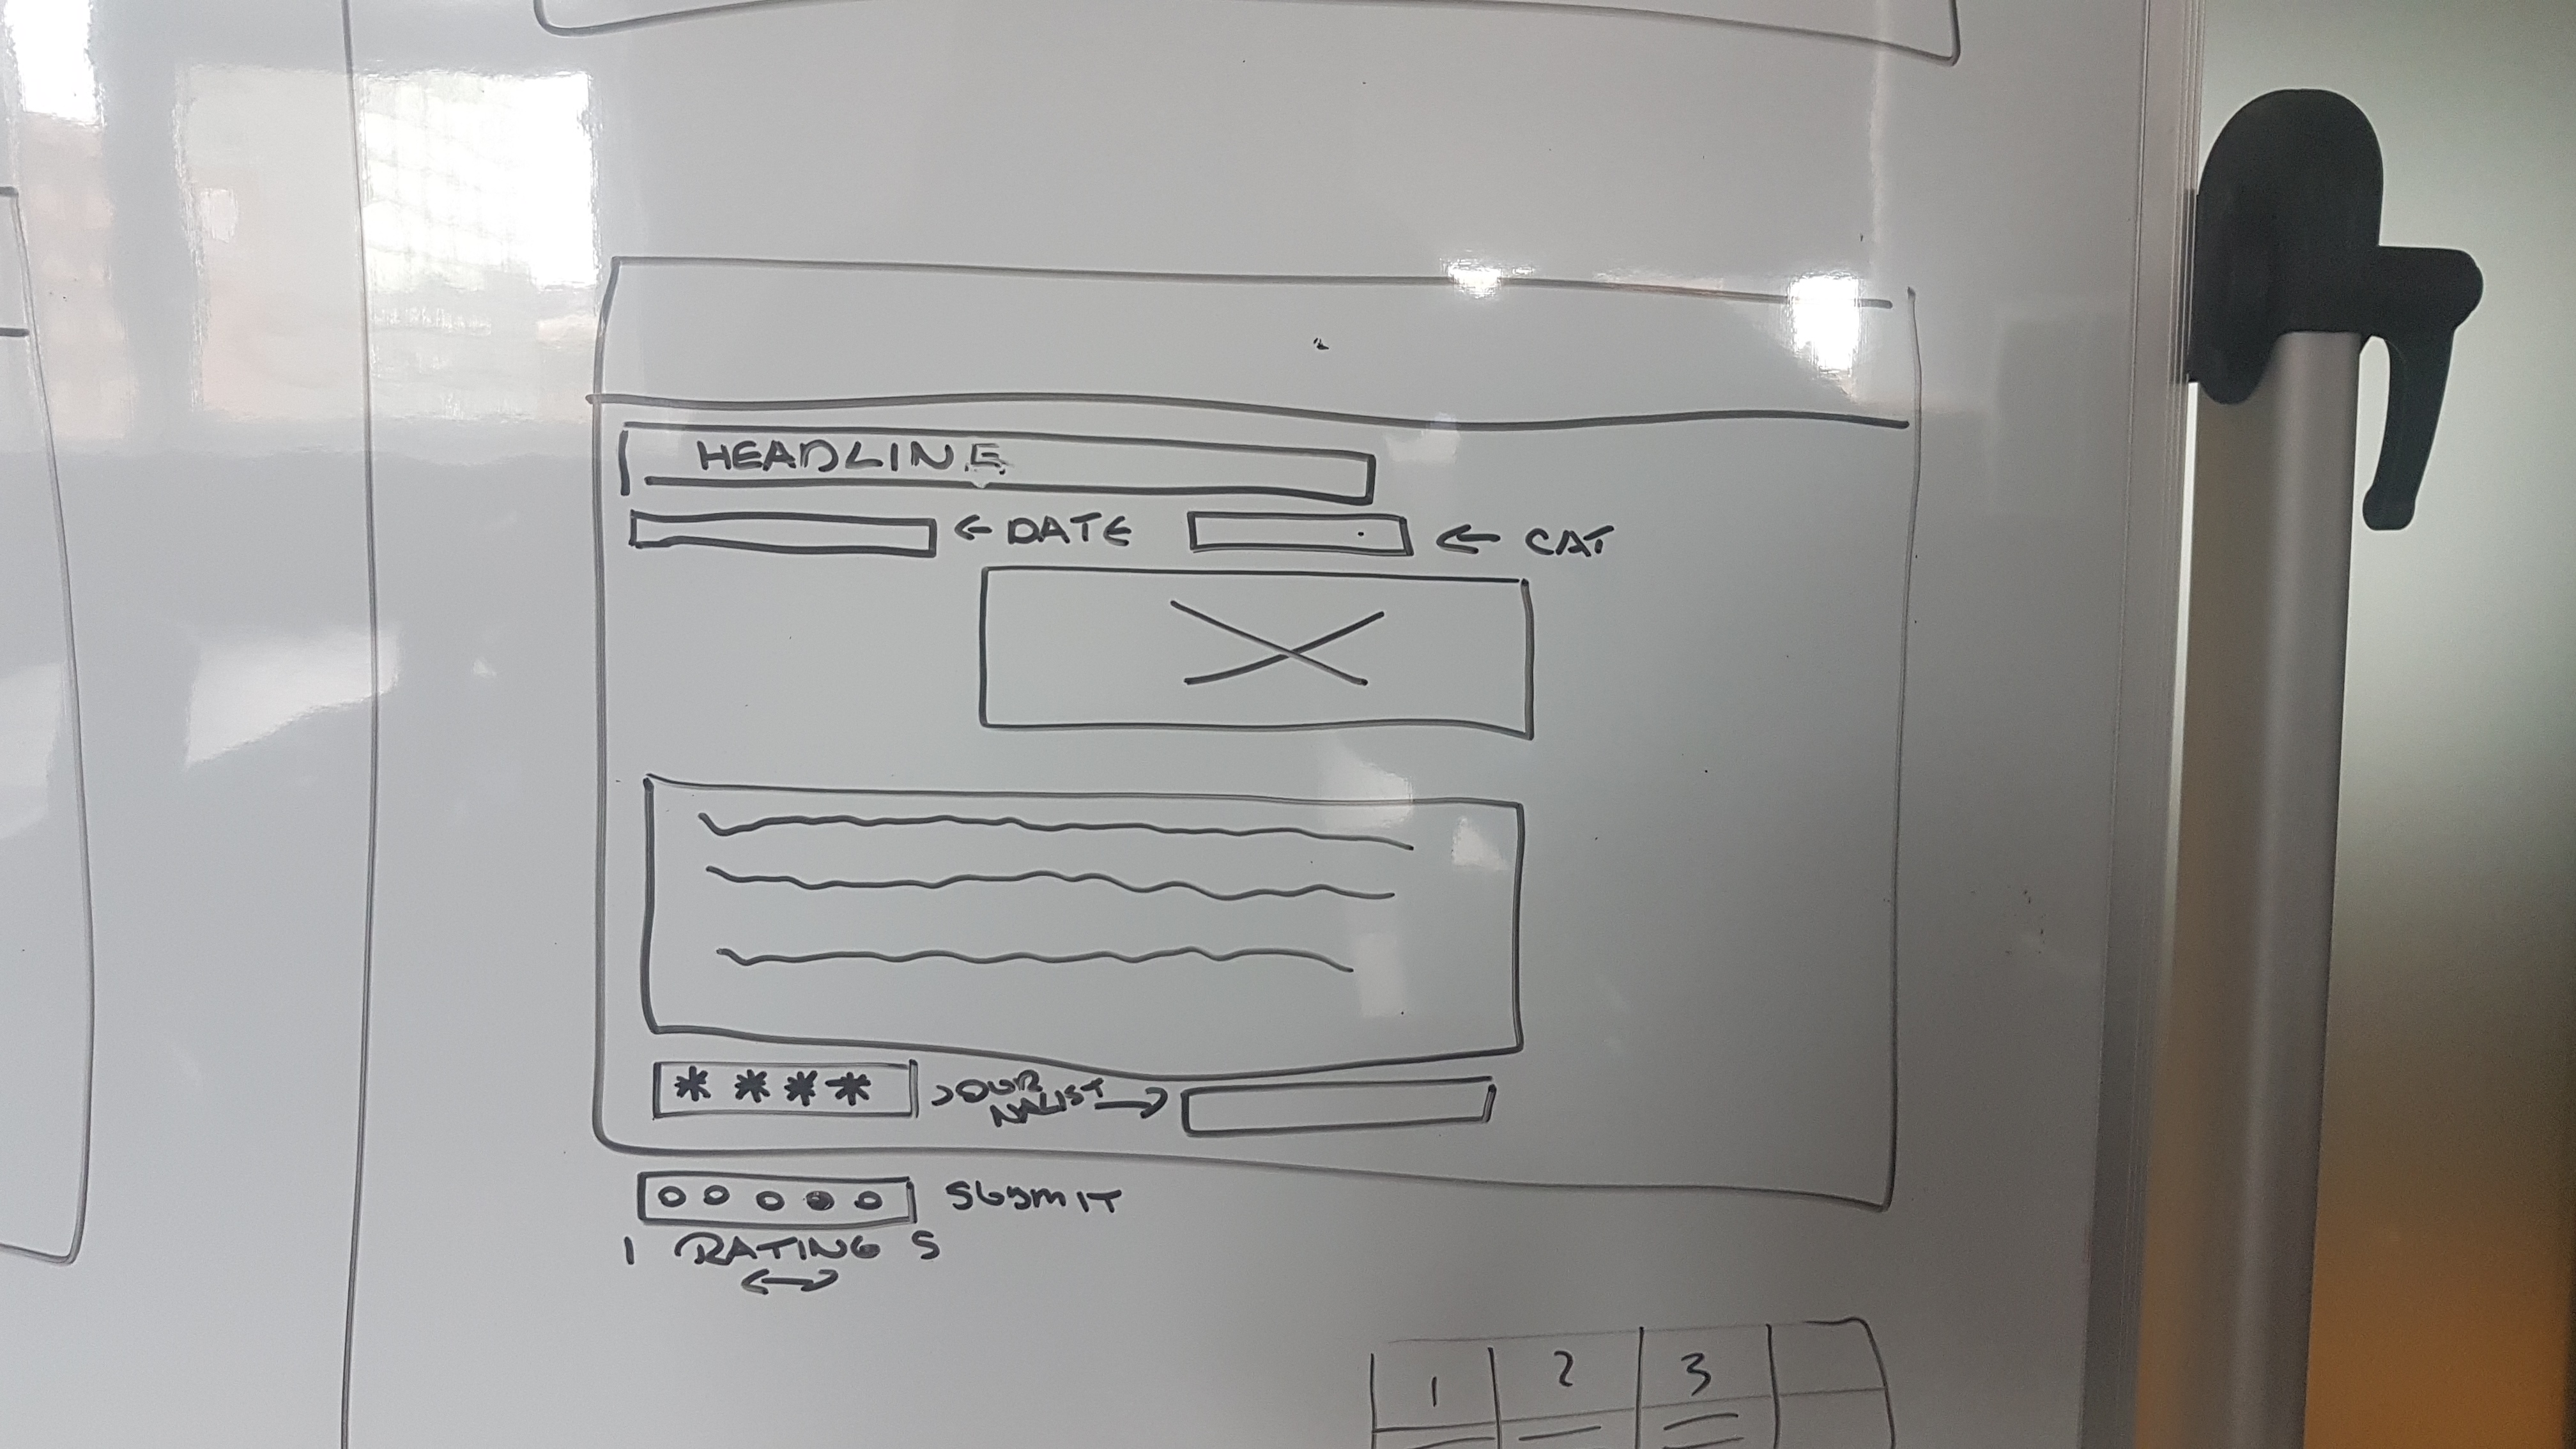 HEADLINE
← DATE
← CAT
* * * *
JOUR
NALIST →
SUBMIT
1 RATING 5
↔
1 2 3